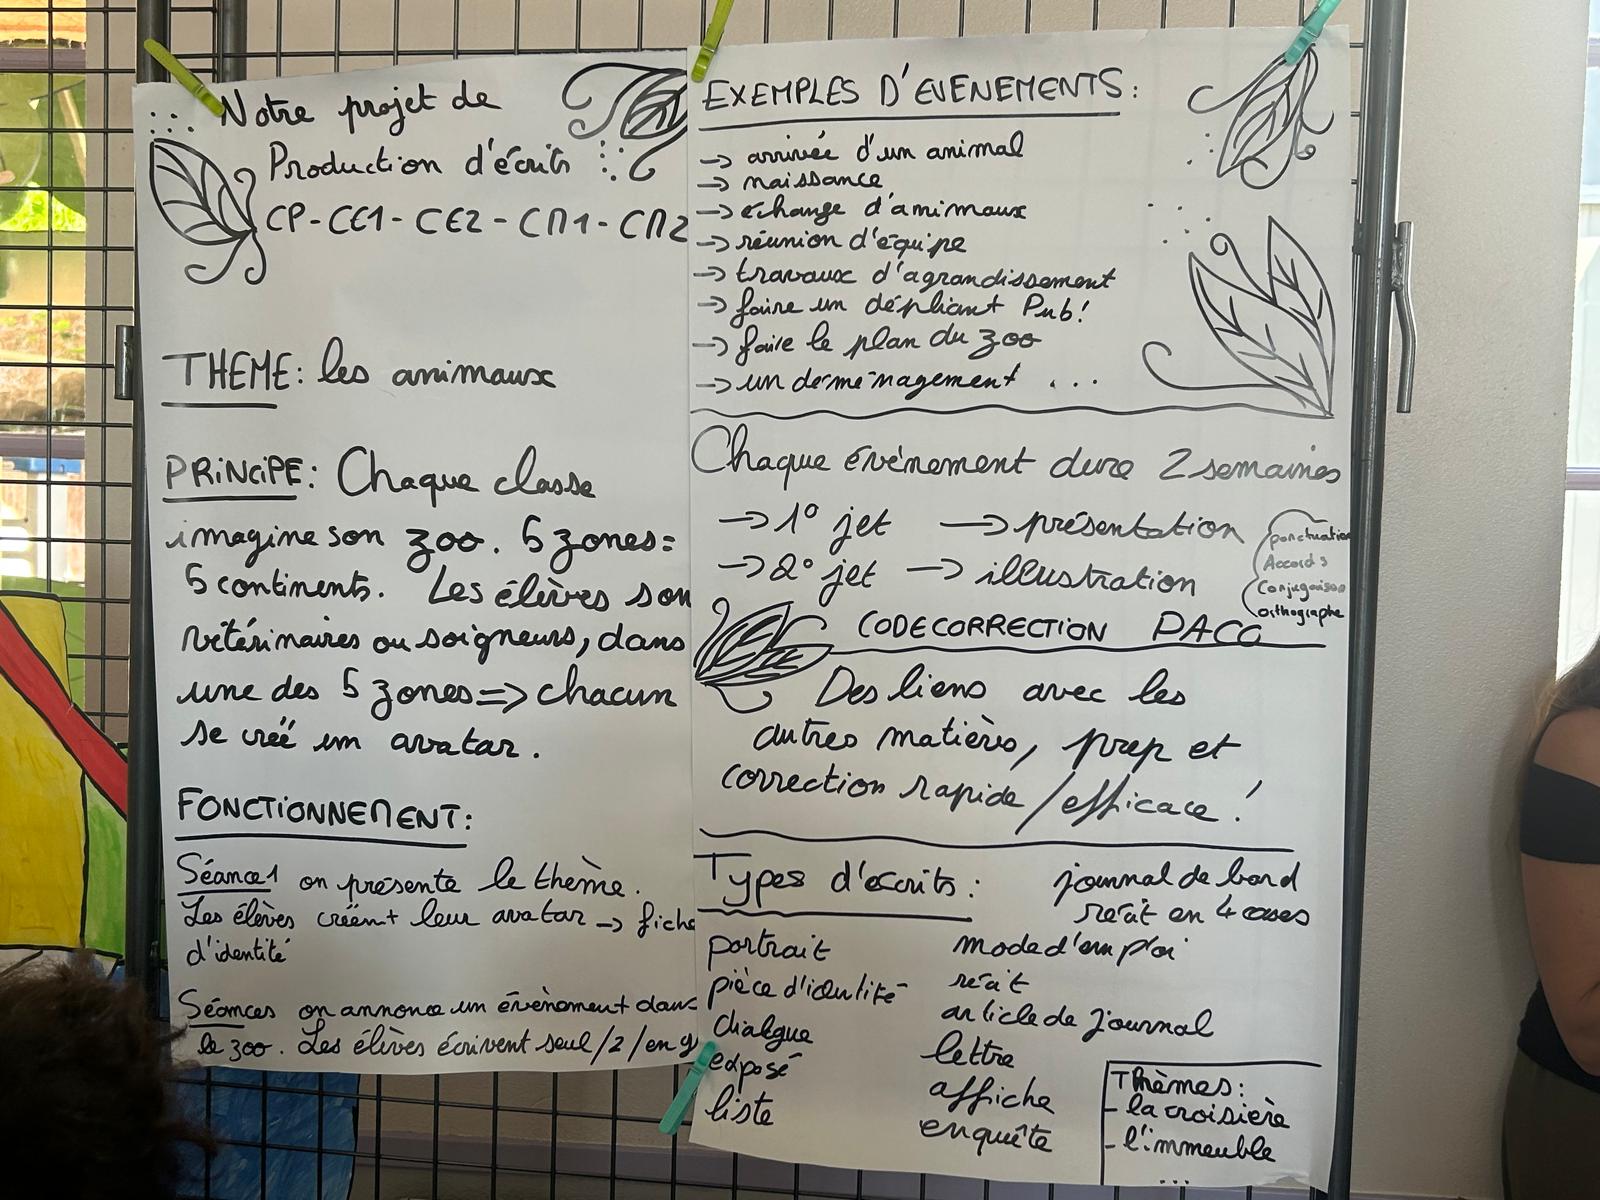 Notre projet de
Production d'écrits
CP - CE1 - CE2 - CM1 - CM2
THEME : les animaux
PRINCIPE : Chaque classe
imagine son zoo. 5 zones =
5 continents. Les élèves son
vétérinaires ou soigneurs, dans
une des 5 zones => chacun
se créé un avatar.
FONCTIONNEMENT :
Séance 1 on présente le thème.
Les élèves créent leur avatar → fiche
d'identité
Séances on annonce un évènement dans
le zoo. Les élèves écrivent seul /2/ en g
EXEMPLES D'EVENEMENTS :
→ arrivée d'un animal
→ naissance
→ échange d'animaux
→ réunion d'équipe
→ travaux d'agrandissement
→ faire un dépliant Pub !
→ faire le plan du zoo
→ un déménagement ...
Chaque évènement dure 2 semaines
→ 1° jet → présentation
→ 2° jet → illustration
ponctuation
Accords
Conjugaison
orthographe
CODE CORRECTION PACO
Des liens avec les
autres matières, prep et
correction rapide / efficace !
Types d'écrits :
portrait
pièce d'identité
dialogue
exposé
liste
journal de bord
récit en 4 cases
mode d'emploi
récit
article de journal
lettre
affiche
enquête
Thèmes :
- la croisière
- l'immeuble
...